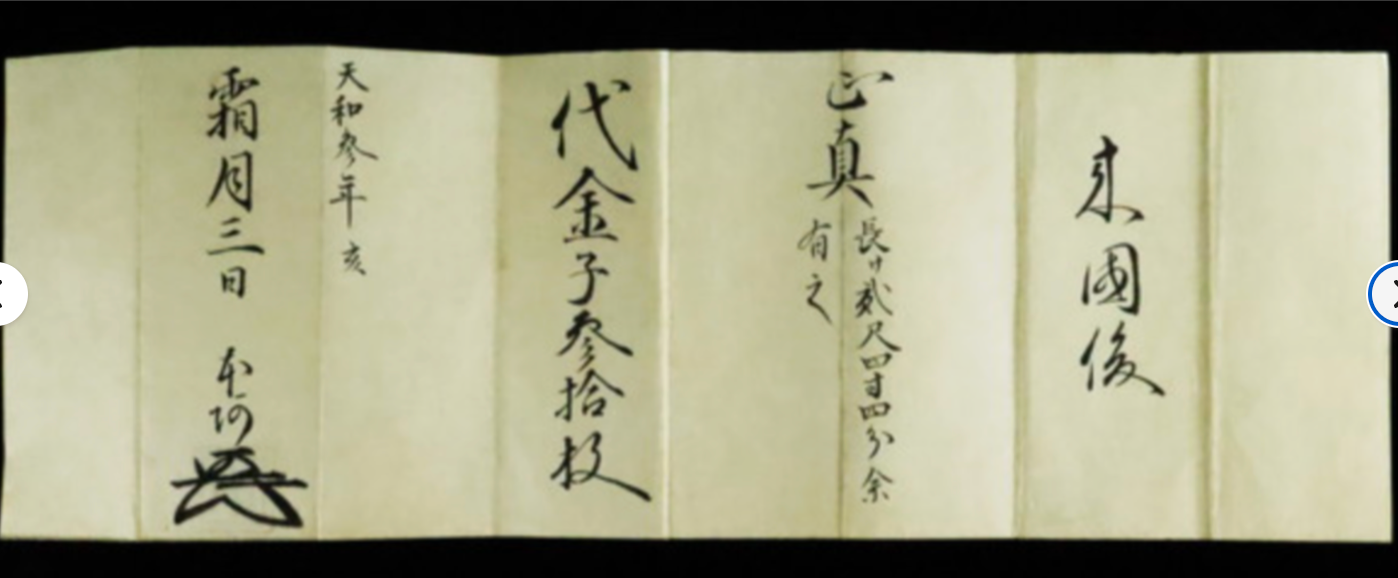 来國俊
正真
長サ貳尺四寸四分余
有之
代金子参拾枚
天和参年亥
霜月三日 本阿